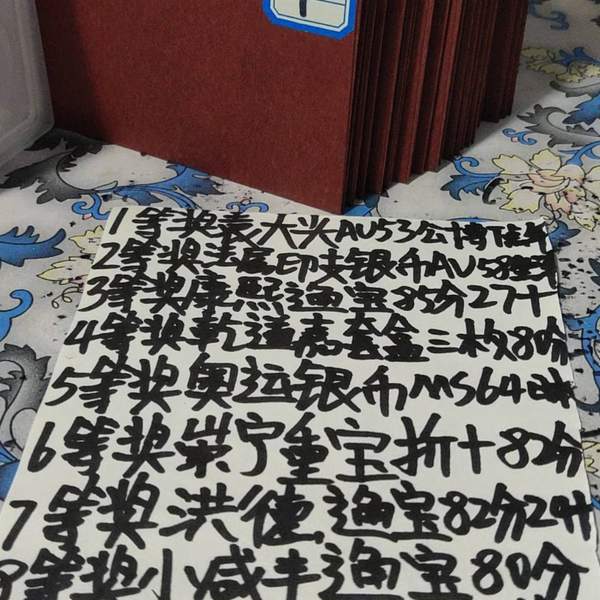 1等奖袁大头AU53公博
2等奖法属印支银币AU58
3等奖康熙通宝85分27十
4等奖乾道嘉套盒三枚80分
5等奖奥运银币MS64
6等奖崇宁重宝折十82分
7等奖洪德通宝82分24
8等奖小咸丰通宝80分